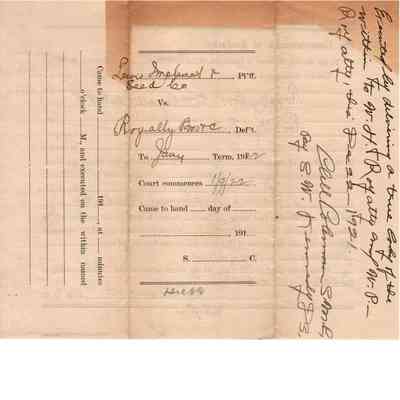 Came to hand 191 , at minutes
o'clock M., and executed on the within named
Seed Co Pl'ff.
Vs.
Royalty Bros Def't.
To Jany Term, 1922
Court commences 1/9/22
Came to hand day of
, 191
S. C.
Executed by delivering a true Copy of the
within to W.H.T. Royalty and W.P.
Royalty, this Dec 22 1921.
Coleman
By E.W. Kennedy D.S.